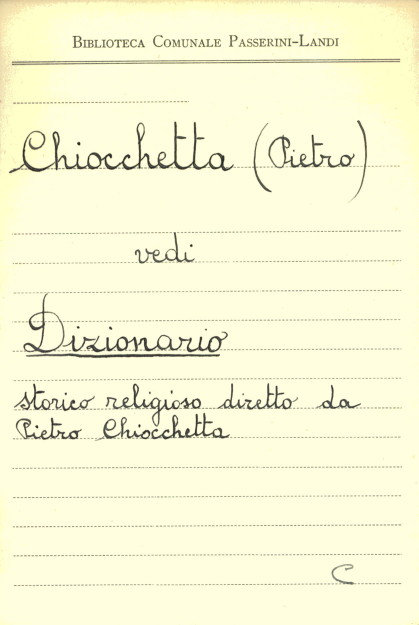 BIBLIOTECA COMUNALE PASSERINI-LANDI
Chiocchetta (Pietro)
vedi
Dizionario
storico religioso diretto da
Pietro Chiocchetta
C